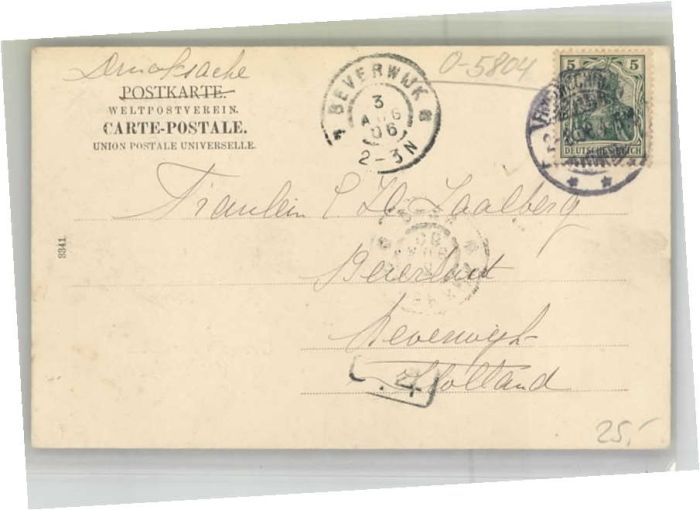 Drucksache
POSTKARTE.
WELTPOSTVEREIN.
CARTE-POSTALE.
UNION POSTALE UNIVERSELLE.
BEVERWIJK
3
AUG
06
2-3N
0-5804
5 5
DEUTSCHES REICH
Fräulein Saalberg
Beverwijk
Holland
9341
4
25,-